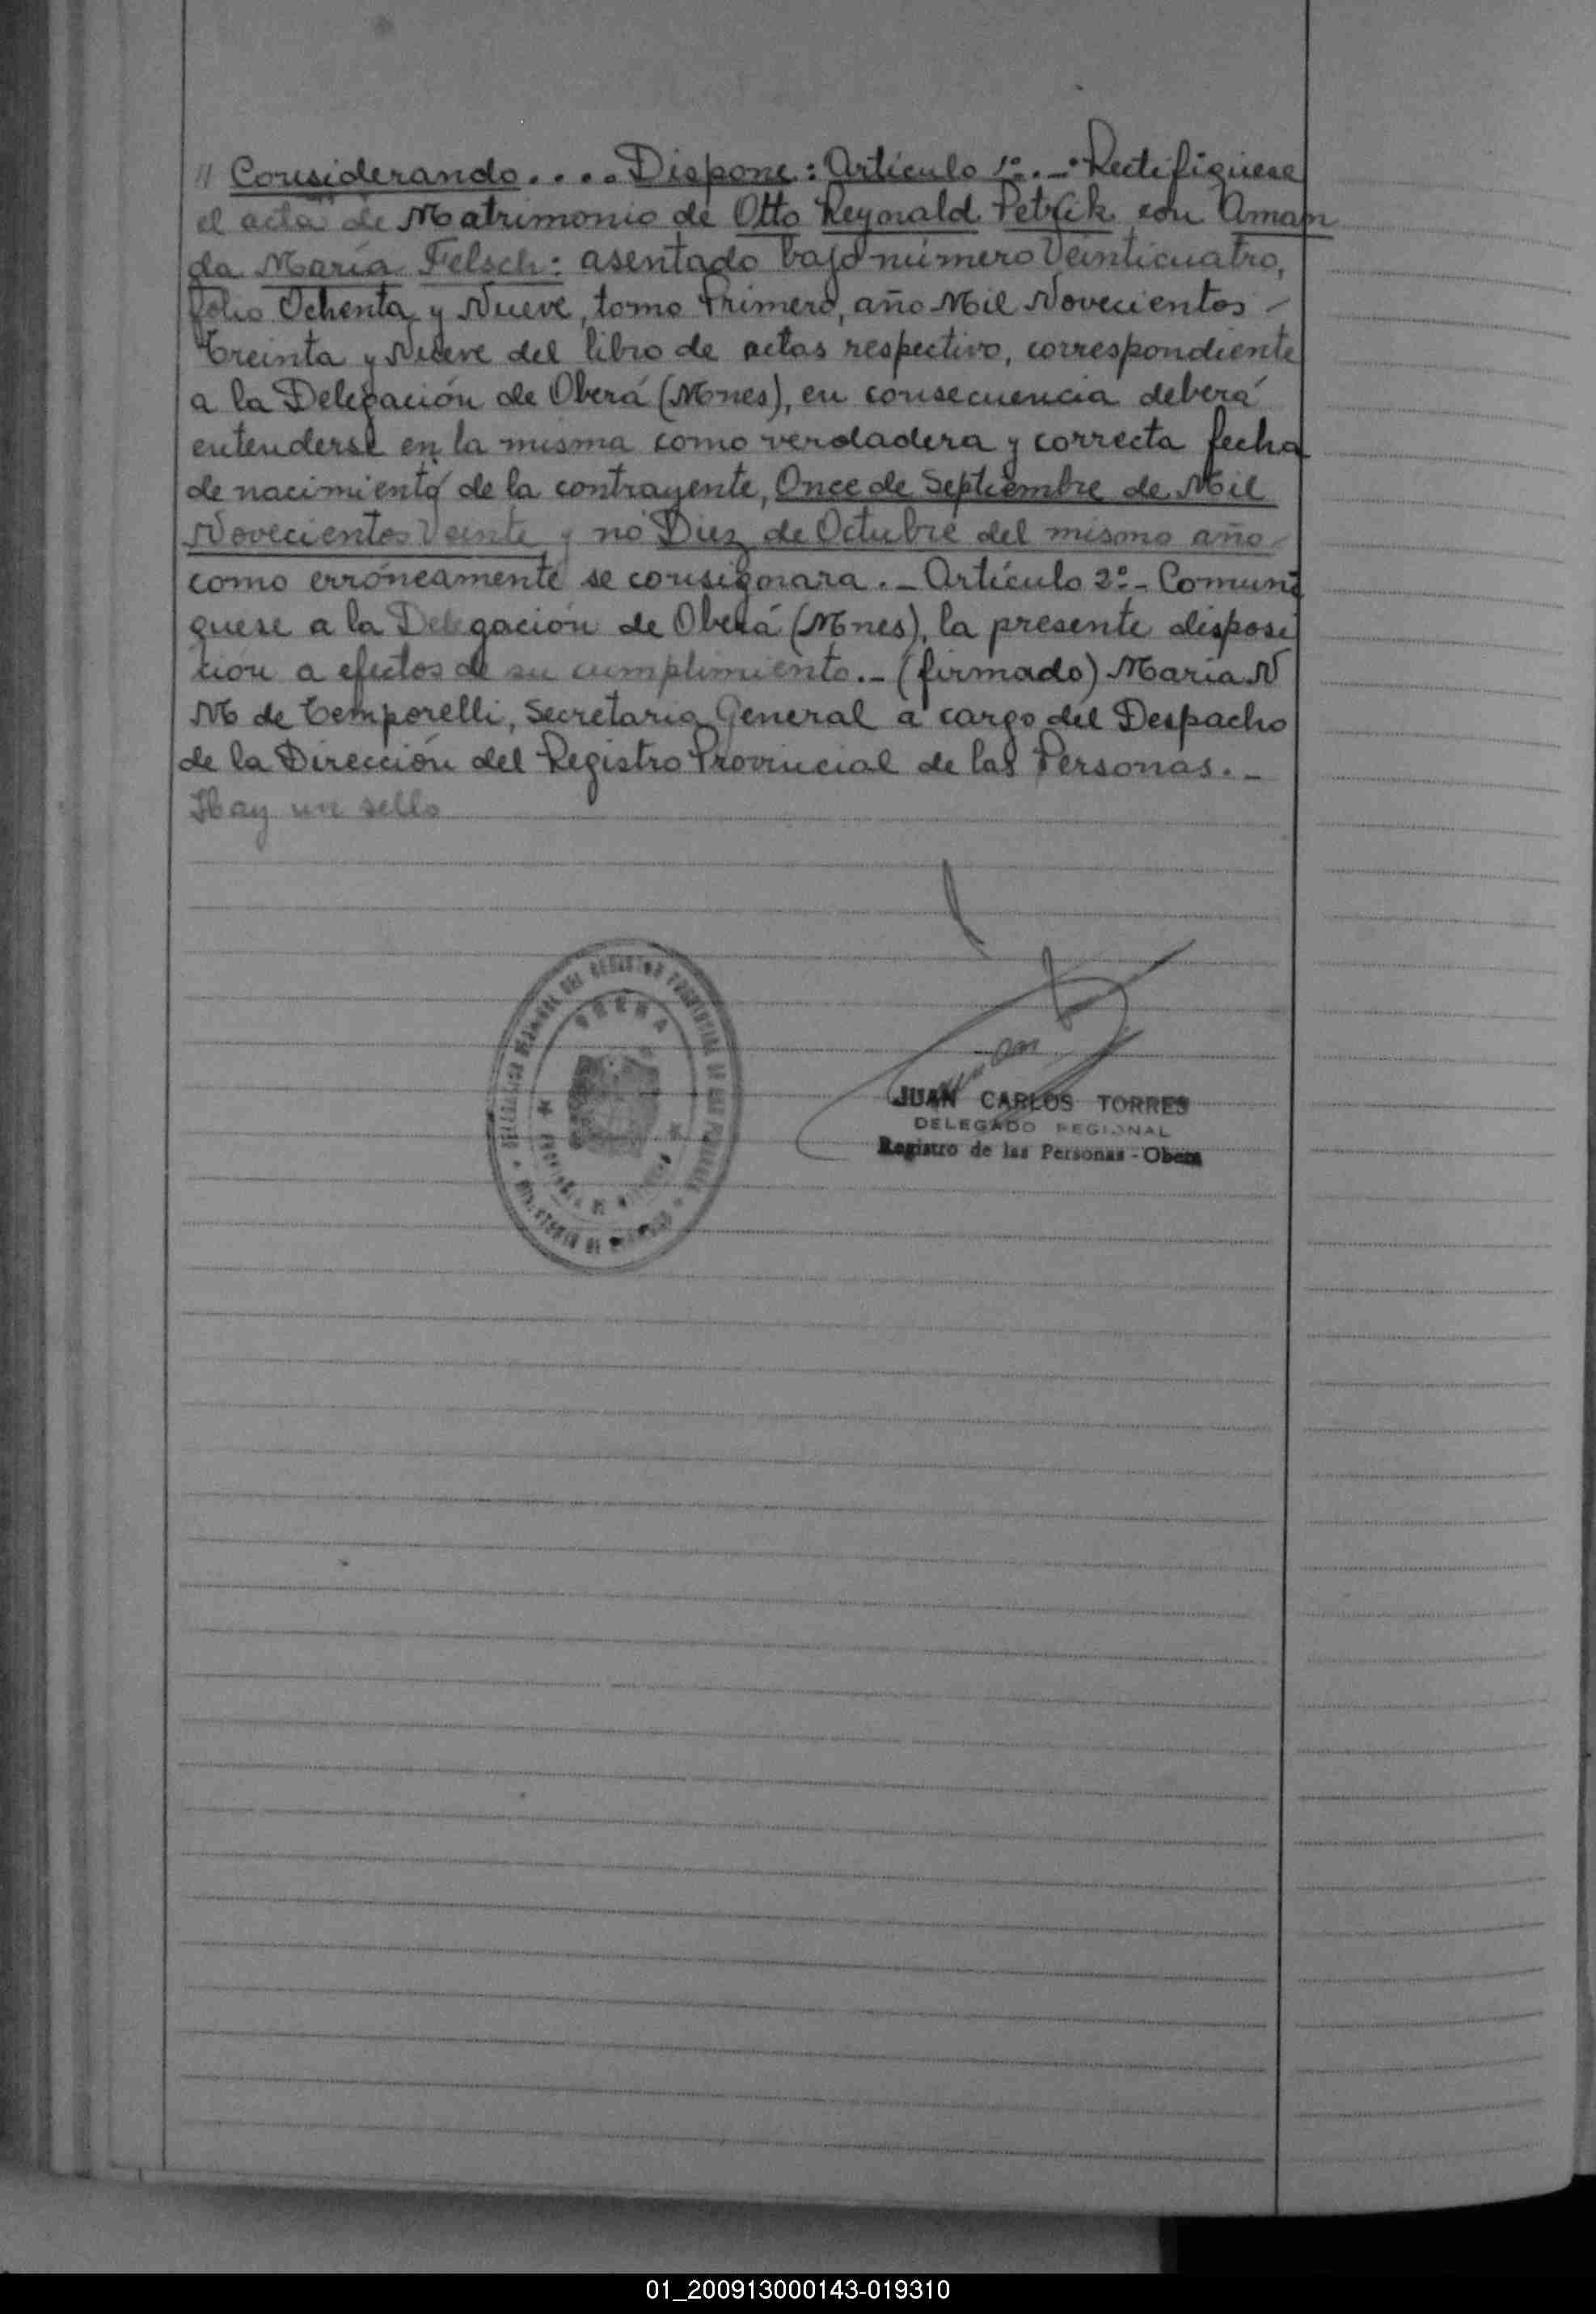 // Considerando.... Dispone: Artículo 1º.- Rectifiquese
el acta de Matrimonio de Otto Reynald Petrik con Aman
da María Felsch: asentado bajo número Veinticuatro,
folio Ochenta y Nueve, tomo Primero, año Mil Novecientos -
Treinta y Nueve del libro de actas respectivo, correspondiente
a la Delegación de Oberá (Mnes), en consecuencia deberá
entenderse en la misma como verdadera y correcta fecha
de nacimiento de la contrayente, Once de Septiembre de Mil
Novecientos Veinte y no Diez de Octubre del mismo año
como erróneamente se consignara.- Artículo 2º- Comuni
quese a la Delegación de Oberá (Mnes), la presente disposi
ción a efectos de su cumplimiento.- (firmado) María N
M de Temporelli, Secretaria General a cargo del Despacho
de la Dirección del Registro Provincial de las Personas.-
Hay un sello
OBERA
JUAN CARLOS TORRES
DELEGADO REGIONAL
Registro de las Personas - Obera
01_200913000143-019310